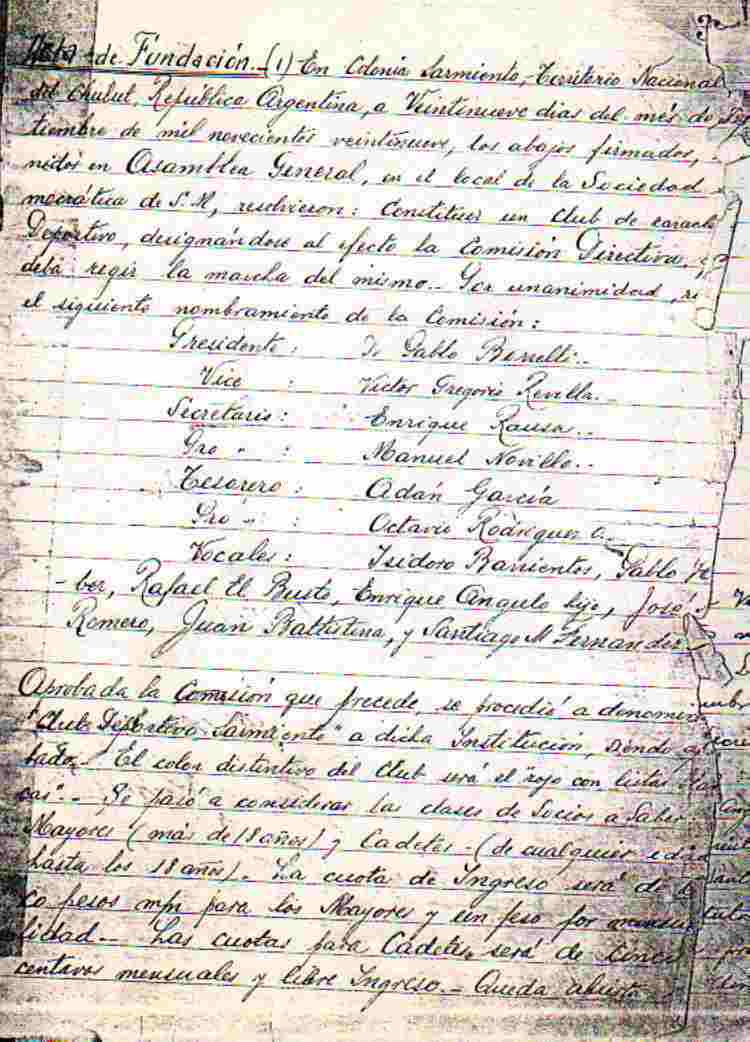 Acta de Fundación.- (1) En Colonia Sarmiento, Territorio Nacional
del Chubut, República Argentina, a Veintinueve dias del més de
tiembre de mil novecientos veintinueve, los abajos firmados,
nidos en Asamblea General, en el local de la Sociedad
mocrática de S.M, resolvieron: Constituir un Club de caracte
Deportivo, designándose al efecto la Comisión Directiva,
debá regir la marcha del mismo.- Por unanimidad,
el siguiente nombramiento de la Comisión:
Presidente: Pablo Borrelli.-
Vice : Victor Gregorio Revilla.-
Secretario: Enrique Rausa.-
Pro " : Manuel Novillo.-
Tesorero: Adán García
Pro " : Octavio Rodriguez
Vocales: Isidoro Barrientos, Pablo
ber, Rafael El Busto, Enrique Angulo hijo, José
Romero, Juan Battistina, y Santiago M. Fernandez
Aprobada la Comisión que precede se procedió a denomin
"Club Deportivo Sarmiento" a dicha Institución, siendo
tado.- El color distintivo del Club será el "rojo con listas
cas".- Se pasó a considerar las clases de Socios a Saber:
Mayores (más de 18 años) y Cadetes - (de cualquier edad
hásta los 18 años).- La cuota de Ingreso será de
co pesos m/n para los Mayores y un peso por mensu
lidad.- Las cuotas para Cadetes será de cinc
centavos mensuales y libre Ingreso.- Queda abierto